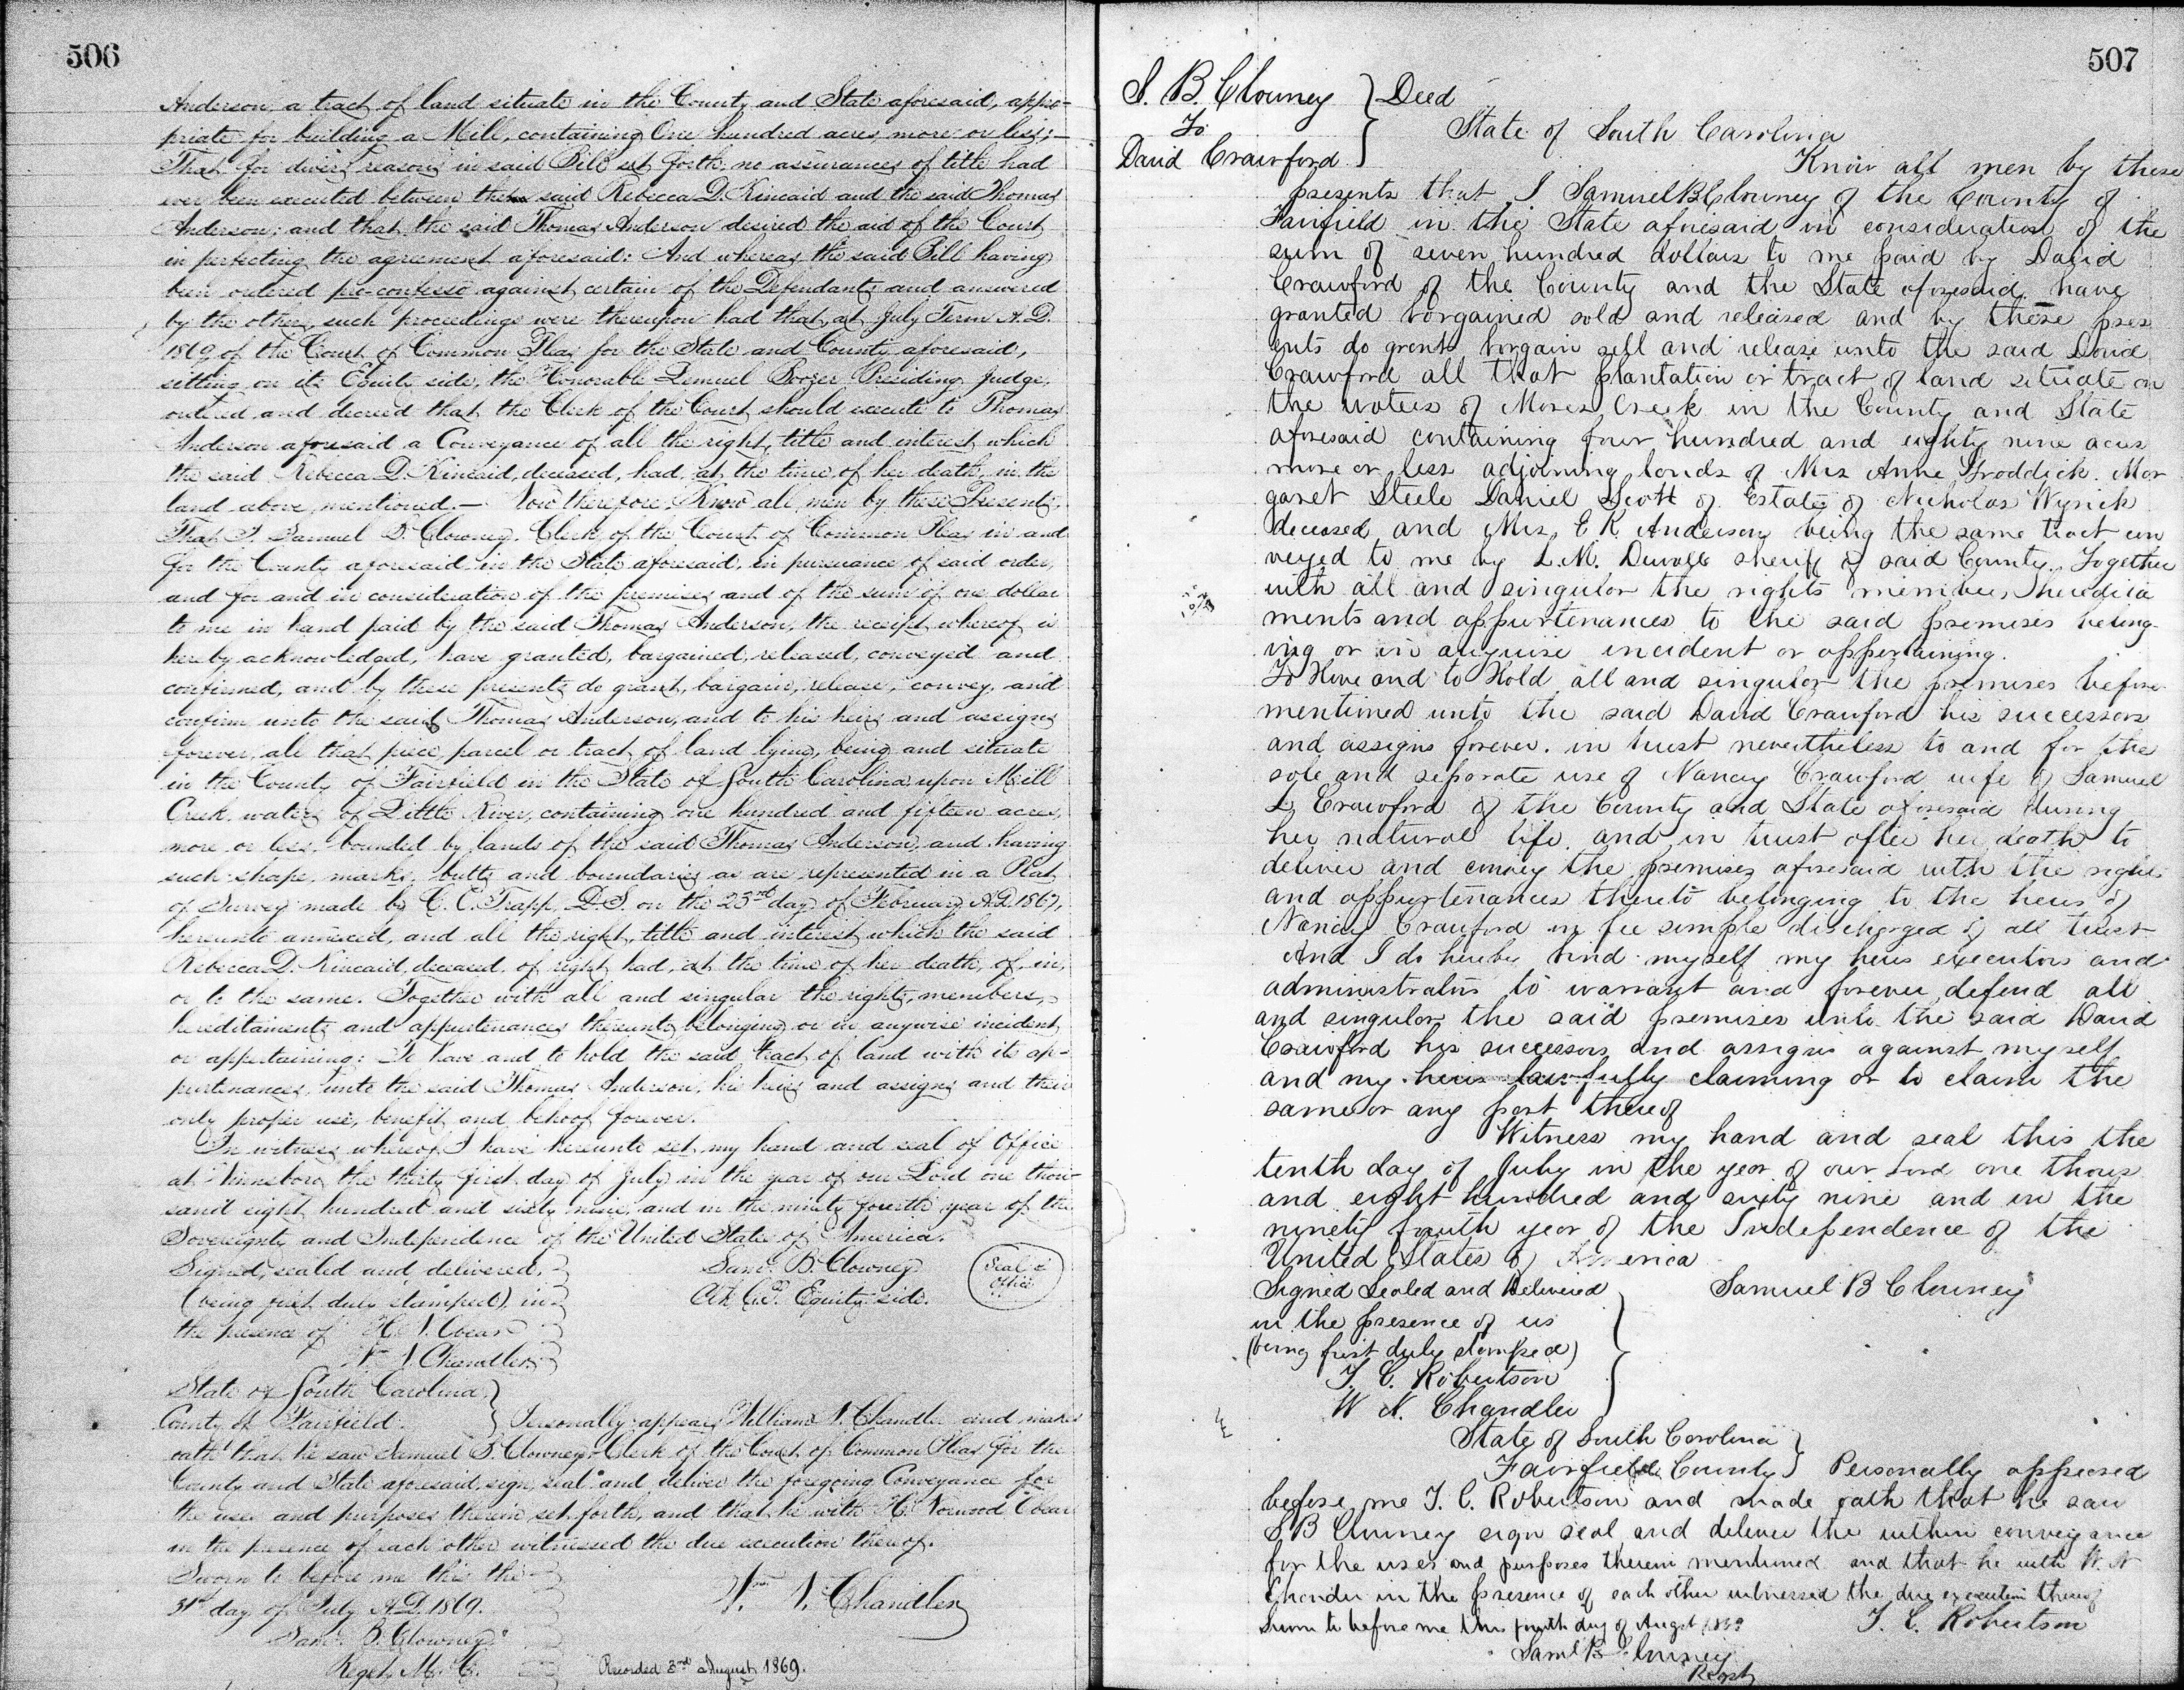 506
Anderson, a tract of land situate in the County and State aforesaid, appro-
priate for building a Mill, containing One hundred acres, more or less;—
That for divers reasons in said Bill set forth, no assurances of title had
ever been executed between the said Rebecca D. Kincaid and the said Thomas
Anderson; and that the said Thomas Anderson desired the aid of the Court
in perfecting the agreement aforesaid: And whereas the said Bill having
been ordered pro-confesso against certain of the Defendants and answered
by the others, such proceedings were thereupon had that at July Term A.D.
1869, of the Court of Common Pleas for the State and County aforesaid,
sitting on its Equity side, the Honorable Lemuel Boozer Presiding Judge,
ordered and decreed that the Clerk of the Court should execute to Thomas
Anderson aforesaid a Conveyance of all the right, title and interest which
the said Rebecca D. Kincaid, deceased, had, at the time of her death, in the
land above mentioned.— Now therefore, Know all men by these Presents,
That I Samuel B. Clowney, Clerk of the Court of Common Pleas in and
for the County aforesaid, in the State aforesaid, in pursuance of said order,
and for and in consideration of the premises and of the sum of one dollar
to me in hand paid by the said Thomas Anderson, the receipt whereof is
hereby acknowledged, have granted, bargained, released, conveyed and
confirmed, and by these presents do grant, bargain, release, convey, and
confirm unto the said Thomas Anderson, and to his heirs and assigns
forever, all that piece, parcel or tract of land lying, being and situate
in the County of Fairfield in the State of South Carolina, upon Mill
Creek, waters of Little River, containing one hundred and fifteen acres,
more or less, bounded by lands of the said Thomas Anderson, and having
such shape, marks, butts and boundaries as are represented in a Plat
of Survey made by C. C. Trapp, D.S. on the 23rd day of February A.D. 1867,
hereunto annexed, and all the right, title and interest which the said
Rebecca D. Kincaid, deceased, of right had, at the time of her death, of, in,
or to the same. Together with all and singular the rights, members,
hereditaments and appurtenances thereunto belonging or in anywise incident
or appertaining: To have and to hold the said tract of land with its ap-
purtenances, unto the said Thomas Anderson, his heirs and assigns and their
only proper use, benefit and behoof forever.
In witness whereof I have hereunto set my hand and seal of Office
at Winnsboro the thirty first day of July in the year of our Lord one thou-
sand eight hundred and sixty nine, and in the ninety fourth year of the
Sovereignty and Independence of the United States of America.
Signed, sealed and delivered, Sam. B. Clowney Seal of Office
(being first duly stamped) in Clk C.P. Equity side.
the presence of H. N. Obear
Wm N. Chandler
State of South Carolina
County of Fairfield. Personally appears William N. Chandler and makes
oath that he saw Samuel B. Clowney Clerk of the Court of Common Pleas for the
County and State aforesaid, sign, seal and deliver the foregoing Conveyance for
the uses and purposes therein set forth, and that he with H. Norwood Obear
in the presence of each other witnessed the due execution thereof.
Sworn to before me this the
31st day of July A.D. 1869. Wm N. Chandler
Sam. B. Clowney
Regst. M. C. Recorded 3rd August 1869.
507
S. B. Clowney Deed
To State of South Carolina
David Crawford Know all men by these
presents that I Samuel B Clowney of the County of
Fairfield in the State aforesaid in consideration of the
sum of seven hundred dollars to me paid by David
Crawford of the County and the State aforesaid have
granted bargained sold and released and by these pres
ents do grant bargain sell and release unto the said David
Crawford all that plantation or tract of land situate on
the waters of Mores Creek in the County and State
aforesaid containing four hundred and eighty nine acres
more or less adjoining lands of Mrs Anne Broddick. Mar
garet Steele Daniel Scott of Estate of Nicholas Wyrick
deceased and Mrs E K Anderson being the same tract con
veyed to me by L. M. Duvall sheriff of said County. Together
with all and singular the rights members, heredita
ments and appurtenances to the said premises belong-
ing or in anywise incident or appertaining.
To Have and to Hold all and singular the premises before
mentioned unto the said David Crawford his successors
and assigns forever. in trust nevertheless to and for the
sole and separate use of Nancy Crawford wife of Samuel
L Crawford of the County and State aforesaid during
her natural life and in trust after her death to
deliver and convey the premises aforesaid with the rights
and appurtenances thereto belonging to the heirs of
Nancy Crawford in fee simple discharged of all trust
And I do hereby bind myself my heirs executors and
administrators to warrant and forever defend all
and singular the said premises unto the said David
Crawford his successors and assigns against myself
and my heirs lawfully claiming or to claim the
same or any part thereof
Witness my hand and seal this the
tenth day of July in the year of our Lord one thous
and eight hundred and sixty nine and in the
ninety fourth year of the Independence of the
United States of America
Signed Sealed and Delivered Samuel B Clowney
in the presence of us
(being first duly stamped)
T. C. Robertson
W N. Chandler
State of South Carolina
Fairfield County Personally appeared
before me T. C. Robertson and made oath that he saw
S B Clowney sign seal and deliver the within conveyance
for the uses and purposes therein mentioned and that he with W. N
Chandler in the presence of each other witnessed the due execution thereof
Sworn to before me this fourth day of August 1869 T. C. Robertson
Saml B Clowney
Regst